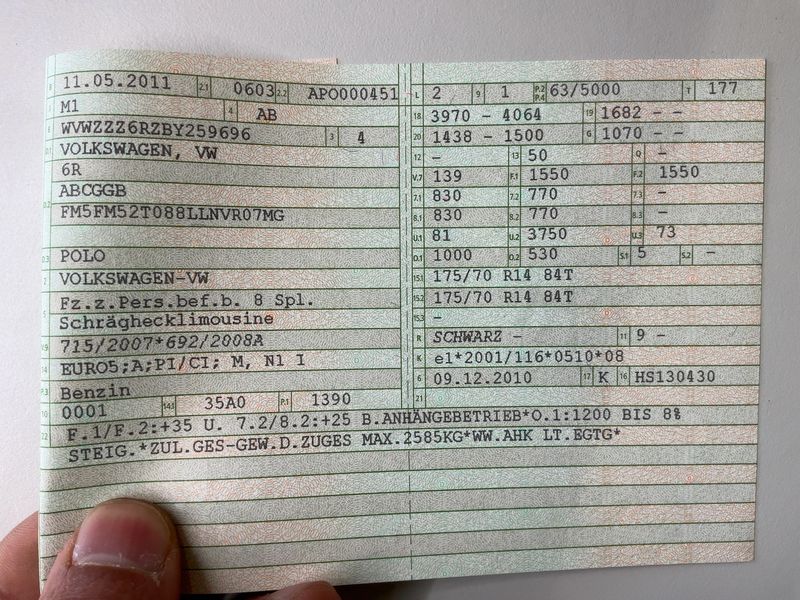 B 11.05.2011 2.1 0603 2.2 APO000451
J M1 4 AB
E WVWZZZ6RZBY259696 3 4
D.1 VOLKSWAGEN, VW
6R
D.2 ABCGGB
FM5FM52T088LLNVR07MG
D.3 POLO
2 VOLKSWAGEN-VW
5 Fz.z.Pers.bef.b. 8 Spl.
Schräghecklimousine
V.9 715/2007*692/2008A
14 EURO5;A;PI/CI; M, N1 I
P.3 Benzin
10 0001 14.1 35A0 P.1 1390
22 F.1/F.2:+35 U. 7.2/8.2:+25 B.ANHÄNGEBETRIEB*O.1:1200 BIS 8%
STEIG.*ZUL.GES-GEW.D.ZUGES MAX.2585KG*WW.AHK LT.EGTG*
L 2 9 1 P.2 P.4 63/5000 T 177
18 3970 - 4064 19 1682 - -
20 1438 - 1500 G 1070 - -
12 - 13 50 Q -
V.7 139 F.1 1550 F.2 1550
7.1 830 7.2 770 7.3 -
8.1 830 8.2 770 8.3 -
U.1 81 U.2 3750 U.3 73
O.1 1000 O.2 530 S.1 5 S.2 -
15.1 175/70 R14 84T
15.2 175/70 R14 84T
15.3 -
R SCHWARZ - 11 9 -
K e1*2001/116*0510*08
6 09.12.2010 17 K 16 HS130430
21